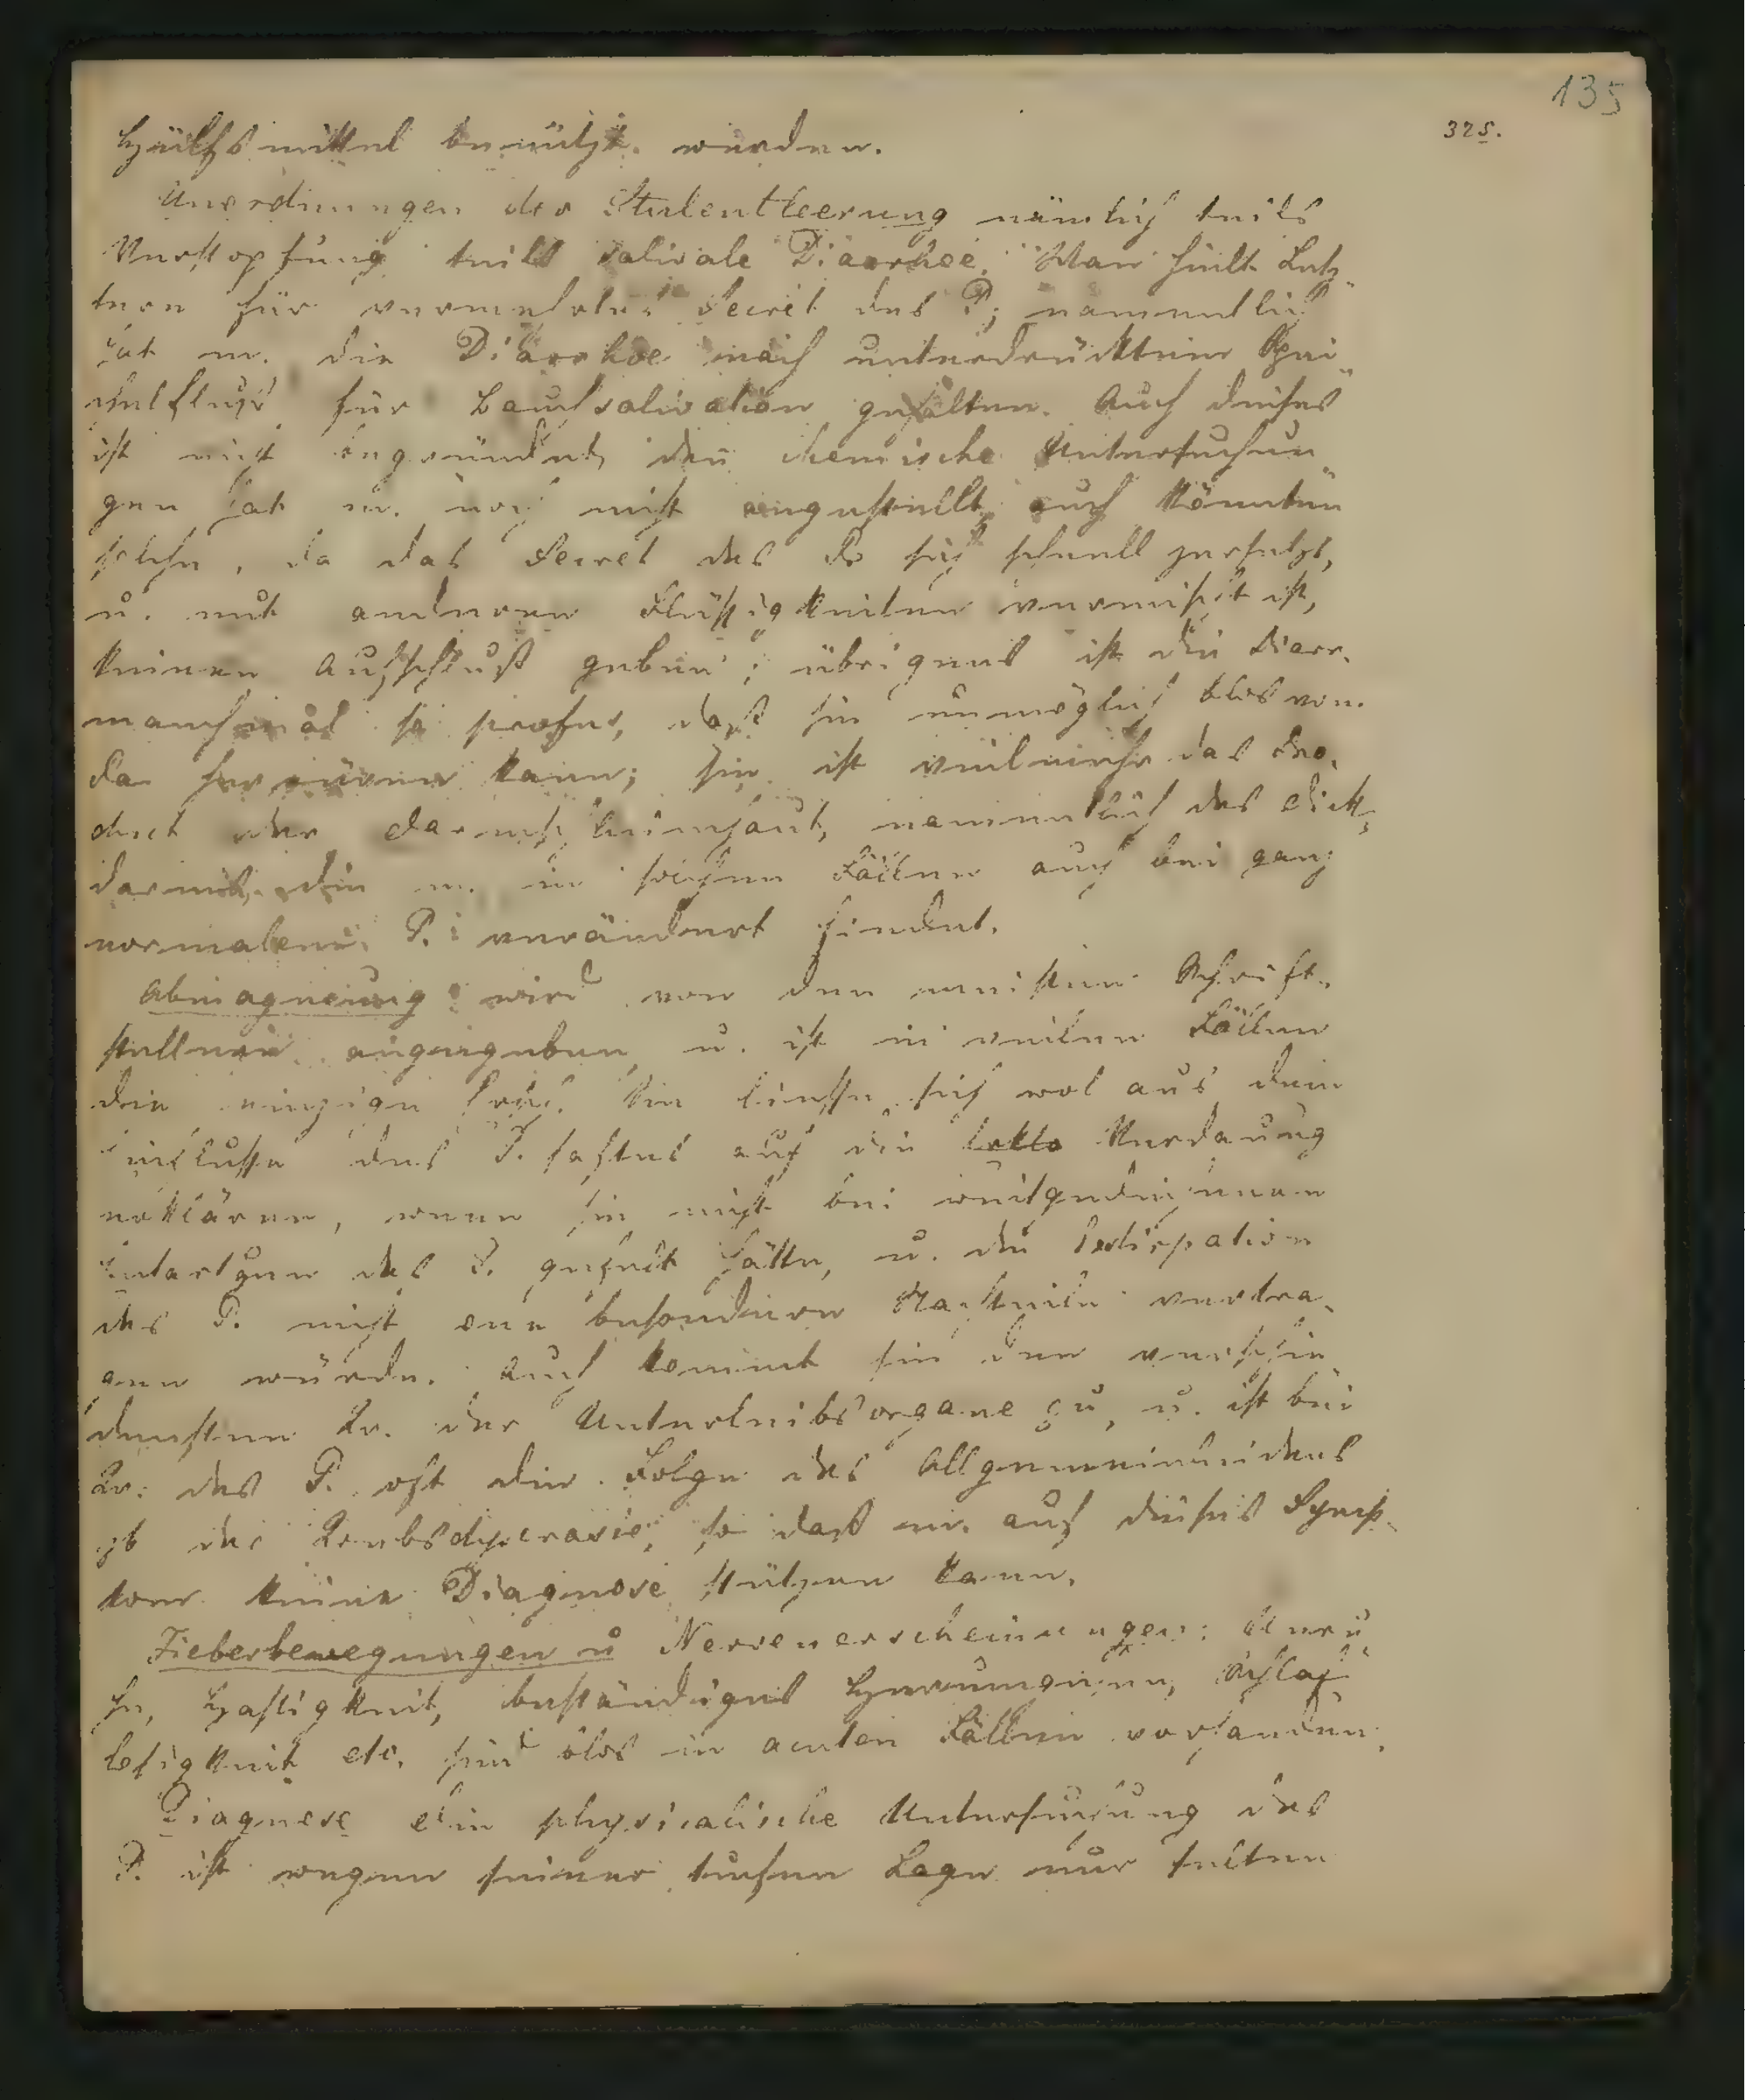 135
325.
Hülfsmittel benützt wurden.
Unordnungen der Stulentleerung nämlich teils
Verstopfung teils salivale Diarrhoe. Man hielt Letz-
tere für vermehrtes Secret des P; namentlich
hat m. die Diarrhoe nach unterdrücktem Spei-
chelfluß für Bauchsalivation gehalten. Auch dieses
ist nicht begründet, den chemische Untersuchun-
gen hat m. noch nicht angestellt, auch könnten
solche, da das Secret des P. sich schnell zersetzt,
u. mit anderen Flüssigkeiten vermischt ist,
keinen Aufschluß geben; übrigens ist die Diarr.
manchmal so profus, daß sie unmöglich blos von
da herrüren kann; sie ist vielmehr das Pro-
duct der Darmschleimhaut, namentlich des Dick-
darmes, die m. in solchen Fällen auch bei ganz
normalem P. verändert findet.
Abmagerung: wird von den meisten Schrift-
stellern angegeben, u. ist in vielen Fällen
die einzige Ersch. Sie ließe sich wol aus dem
Einflusse des P. saftes auf die Verdauung
erklären, wenn sie nicht bei weitgediehenen
Entartgen des P. gefehlt hätte, u. die Exstirpation
des P. nicht one besondern Nachteile vertra-
gen würde. Auch kommt sie den verschie-
densten Kr. der Unterleibsorgane zu, u. ist bei
Kr. des P. oft die Folge des Allgemeinleidens
zb der Krebsdyscrasie, so daß m. auf dieses Symp-
tom keine Diagnose stützen kann.
Fieberbewegungen u Nervenerscheinungen: Unru-
he, Hastigkeit, beständiges Herumgehen, Schlaf-
losigkeit etc. sind blos in acuten Fällen vorhanden.
Diagnose Die physicalische Untersuchung des
P. ist wegen seiner tiefen Lage nur selten